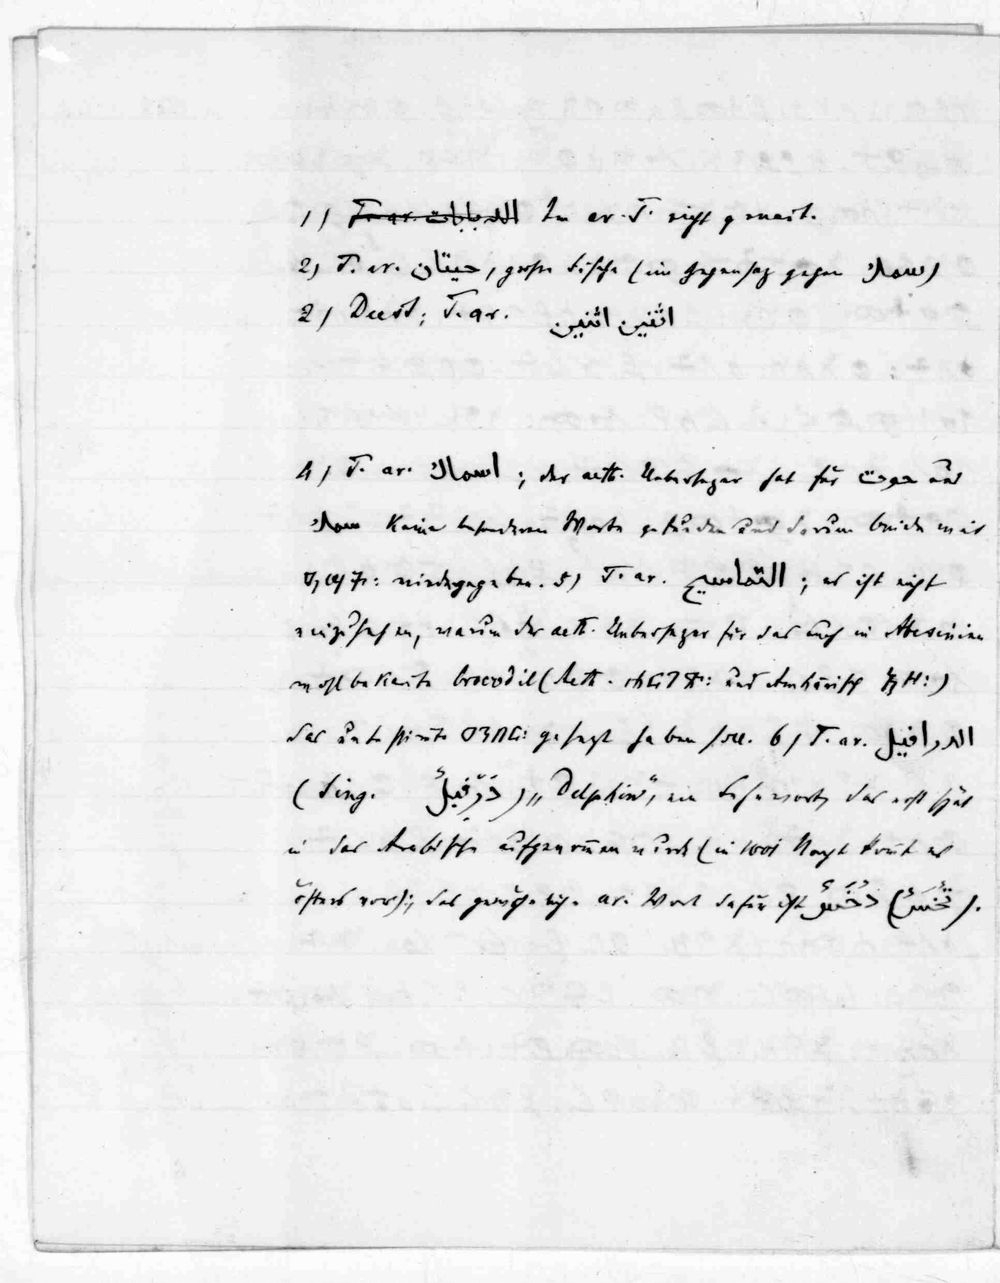 1) T. ar. الدبابات Im ar. T. nicht genant.
2) T. ar. حيتان, grosse Fische (im Gegensatz gegen سمك)
2) Deest; T. ar. اثنين اثنين
4) T. ar. اسماك; der aeth. Uebersetzer hat für حوت und
سمك keine besonderen Worte gefunden und darum beide mit
wiedergegeben. 5) T. ar. التماسيح; es ist nicht
einzusehen, warum der aeth. Uebersetzer für das auch in Abessinien
wohlbekante Crocodil (Aeth. ሐርገጽ: und Amharisch አዞ:)
das unbestimte ዐንበር: gesagt haben soll. 6) T. ar. الدرافيل
(Sing. دَرْفِيلٌ) „Delphin", ein Lehnwort, das erst spät
in das Arabische aufgenommen wurde (in 1001 Nacht komt es
öfters vor); das gewöhnliche ar. Wort dafür ist دُخَسٌ (تُخَسٌ).